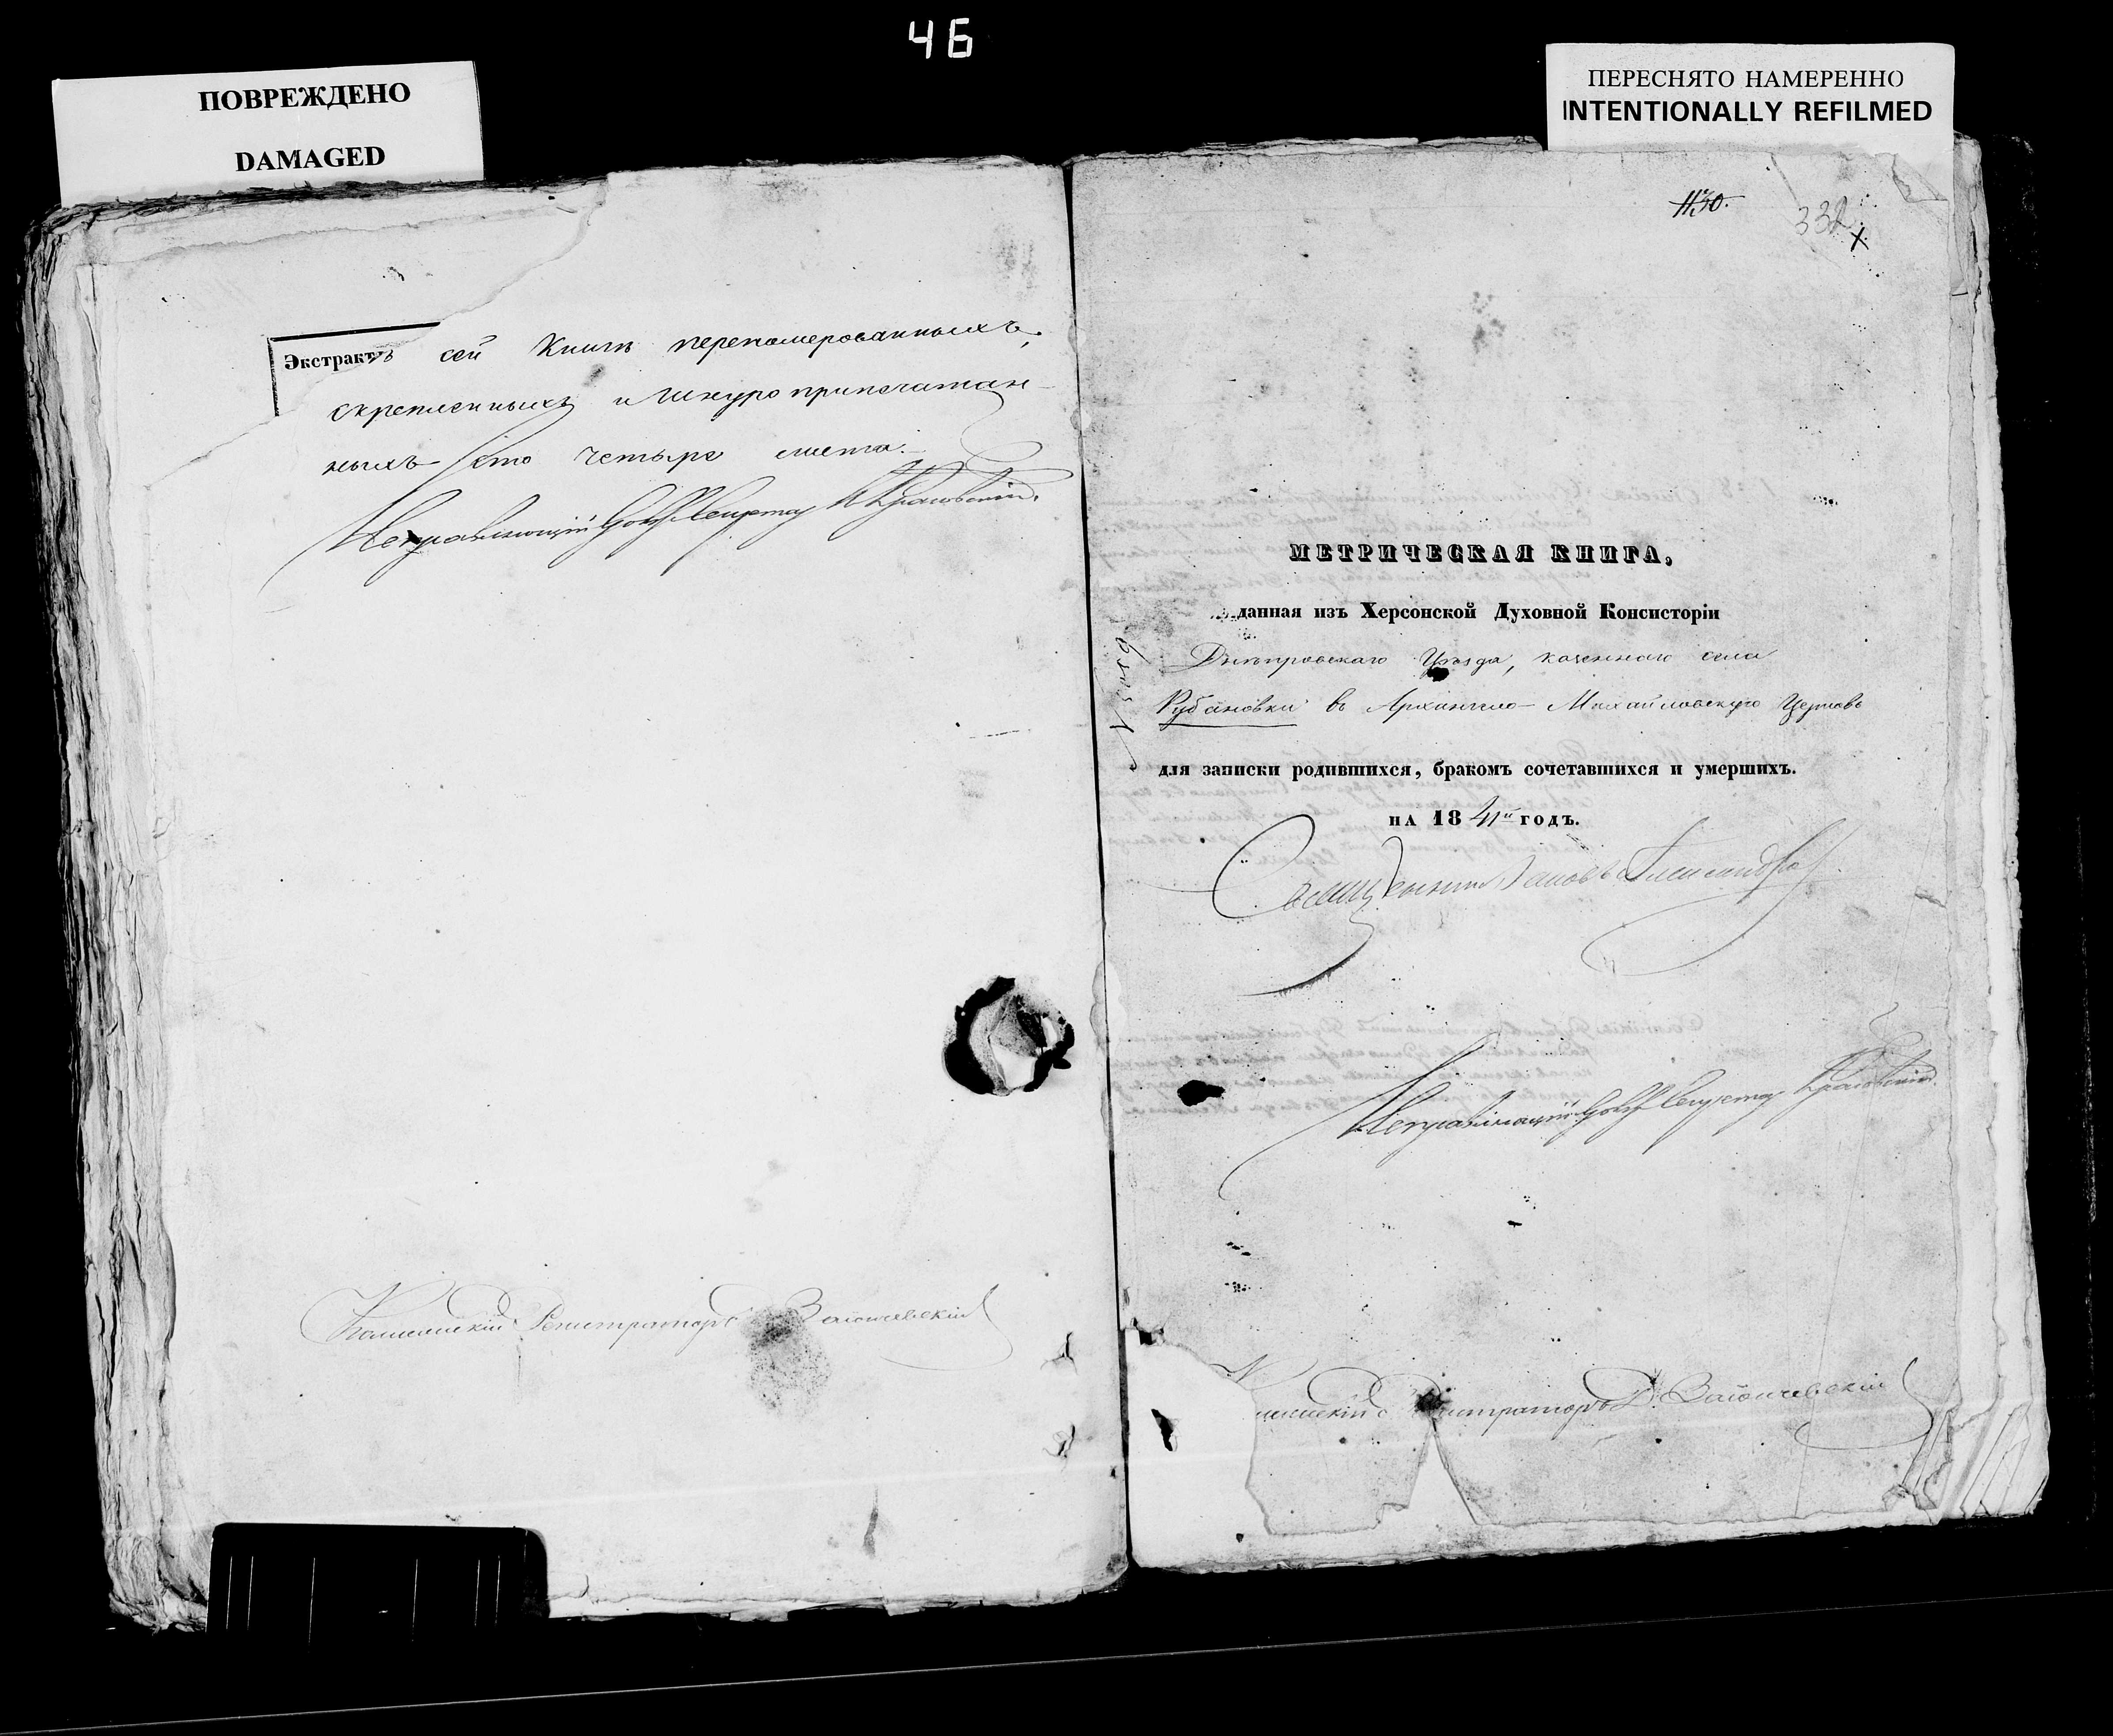 46
ПОВРЕЖДЕНО
DAMAGED
ПЕРЕСНЯТО НАМЕРЕННО
INTENTIONALLY REFILMED
Экстрактъ сей Книги перенумерованныхъ,
скрепленныхъ и шнуроприпечатан-
ныхъ сто четыре листа.
Исправляющій Секретарь
Регистраторъ
1130.
332
х
МЕТРИЧЕСКАЯ КНИГА,
данная изъ Херсонской Духовной Консисторіи
Днѣпровскаго Уѣзда, казеннаго села
Рубановки въ Архангело-Михайловскую Церковь
для записки родившихся, бракомъ сочетавшихся и умершихъ.
НА 1841й ГОДЪ.
Священникъ Іаковъ
Исправляющій Секретарь